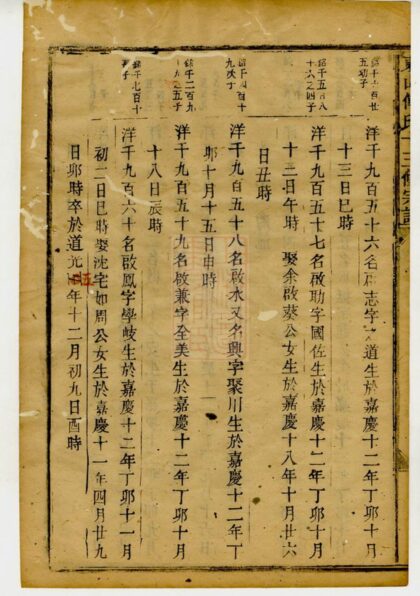 洋千九百五十六名啟志字道生於嘉慶十二年丁卯十月
十三日巳時
十六之四子
洋千九百五十七名啟助字國佐生於嘉慶十二年丁卯十月
十三日午時 娶余啟葵公女生於嘉慶十八年十月廿六
日丑時
千四百十
九次子
洋千九百五十八名啟水又名興字聚川生於嘉慶十二年丁
卯十月十五日申時
千二百九
之五子
洋千九百五十九名啟兼字全美生於嘉慶十二年丁卯十月
十八日辰時
千七百十
子
洋千九百六十名啟鳳字學岐生於嘉慶十二年丁卯十一月
初二日巳時娶沈宅如周公女生於嘉慶十一年四月廿九
日卯時卒於道光年十二月初九日酉時